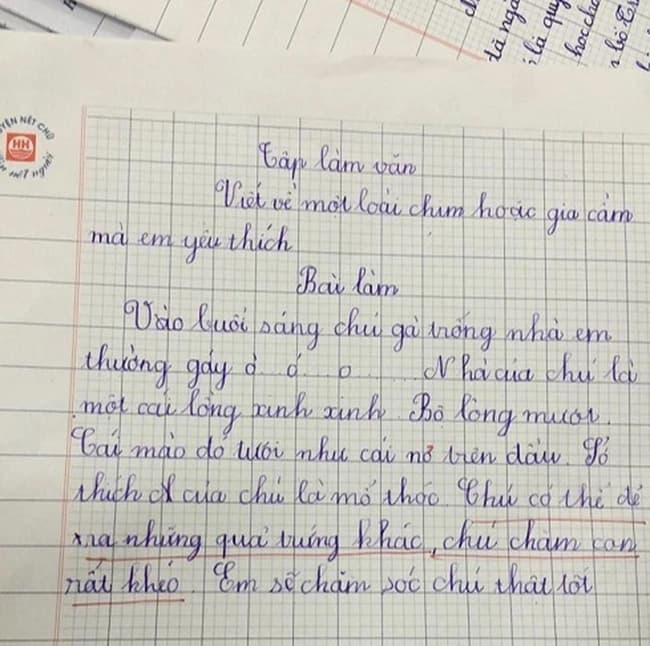 đã ngà
là quy
hoc chă
bô Tr
YÊN NÉT CHỮ
HH
nết người
Tập làm văn
Viết về một loài chim hoặc gia cầm
mà em yêu thích
Bài làm
Vào buổi sáng chú gà trống nhà em
thường gáy ò ó o ..... Nhà của chú là
một cái lồng xinh xinh. Bộ lông mượt.
Cái mào đỏ tươi như cái nơ trên đầu. Sở
thích của chú là mổ thóc. Chú có thể đẻ
ra những quả trứng khác, chú chăm con
rất khéo. Em sẽ chăm sóc chú thật tốt